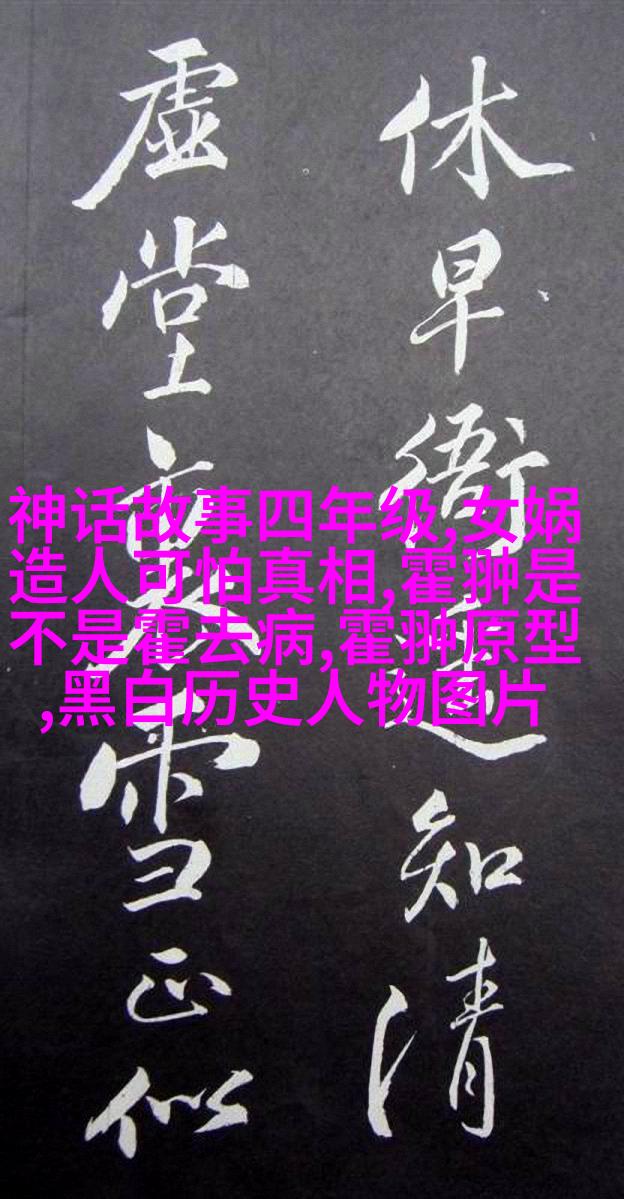 休早衙知清
虚堂雪正似
神话故事四年级,女娲
造人可怕真相,霍翀是
不是霍去病,霍翀原型
,黑白历史人物图片